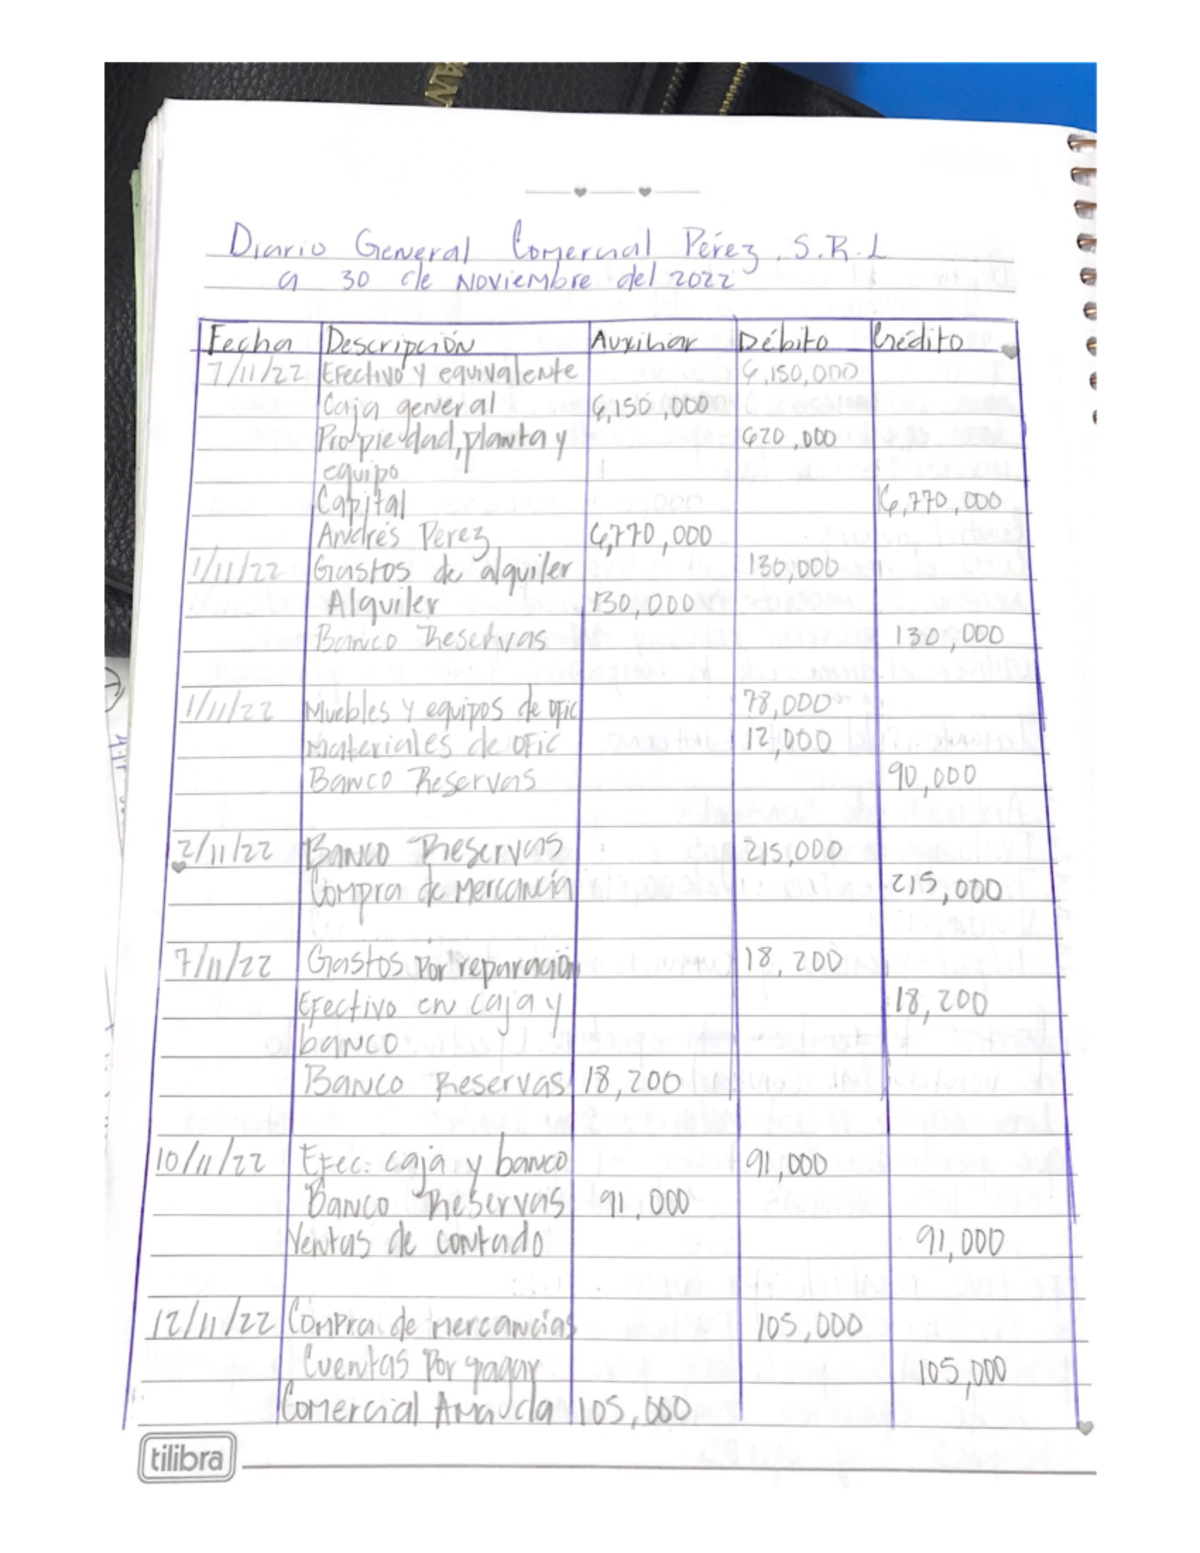 Diario General Comercial Pérez, S.R.L
a 30 de Noviembre del 2022
Fecha Descripción Auxiliar Débito Crédito
7/11/22 Efectivo y equivalente 6,150,000
Caja general 6,150,000
Propiedad, planta y 620,000
equipo
Capital 6,770,000
Andrés Perez 6,770,000
1/11/22 Gastos de alquiler 130,000
Alquiler 130,000
Banco Reservas 130,000
1/11/22 Muebles y equipos de ofic 78,000
Materiales de ofic 12,000
Banco Reservas 90,000
2/11/22 Banco Reservas 215,000
Compra de Mercancía 215,000
7/11/22 Gastos por reparación 18,200
Efectivo en caja y 18,200
banco
Banco Reservas 18,200
10/11/22 Efec. caja y banco 91,000
Banco Reservas 91,000
Ventas de contado 91,000
12/11/22 Compra de mercancias 105,000
Cuentas por pagar 105,000
Comercial Amada 105,000
tilibra